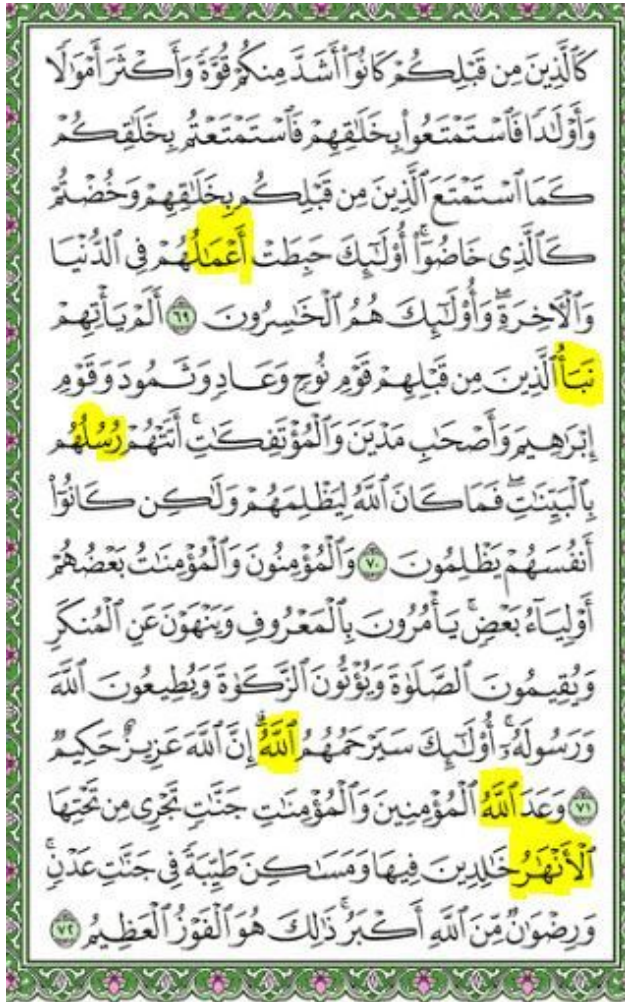 كَٱلَّذِينَ مِن قَبْلِكُمْ كَانُوٓا۟ أَشَدَّ مِنكُمْ قُوَّةً وَأَكْثَرَ أَمْوَٰلًا
وَأَوْلَـٰدًا فَٱسْتَمْتَعُوا۟ بِخَلَـٰقِهِمْ فَٱسْتَمْتَعْتُم بِخَلَـٰقِكُمْ
كَمَا ٱسْتَمْتَعَ ٱلَّذِينَ مِن قَبْلِكُم بِخَلَـٰقِهِمْ وَخُضْتُمْ
كَٱلَّذِى خَاضُوٓا۟ ۚ أُو۟لَـٰٓئِكَ حَبِطَتْ أَعْمَـٰلُهُمْ فِى ٱلدُّنْيَا
وَٱلْـَٔاخِرَةِ ۖ وَأُو۟لَـٰٓئِكَ هُمُ ٱلْخَـٰسِرُونَ ٦٩ أَلَمْ يَأْتِهِمْ
نَبَأُ ٱلَّذِينَ مِن قَبْلِهِمْ قَوْمِ نُوحٍ وَعَادٍ وَثَمُودَ وَقَوْمِ
إِبْرَٰهِيمَ وَأَصْحَـٰبِ مَدْيَنَ وَٱلْمُؤْتَفِكَـٰتِ ۚ أَتَتْهُمْ رُسُلُهُم
بِٱلْبَيِّنَـٰتِ ۖ فَمَا كَانَ ٱللَّهُ لِيَظْلِمَهُمْ وَلَـٰكِن كَانُوٓا۟
أَنفُسَهُمْ يَظْلِمُونَ ٧٠ وَٱلْمُؤْمِنُونَ وَٱلْمُؤْمِنَـٰتُ بَعْضُهُمْ
أَوْلِيَآءُ بَعْضٍ ۚ يَأْمُرُونَ بِٱلْمَعْرُوفِ وَيَنْهَوْنَ عَنِ ٱلْمُنكَرِ
وَيُقِيمُونَ ٱلصَّلَوٰةَ وَيُؤْتُونَ ٱلزَّكَوٰةَ وَيُطِيعُونَ ٱللَّهَ
وَرَسُولَهُۥٓ ۚ أُو۟لَـٰٓئِكَ سَيَرْحَمُهُمُ ٱللَّهُ ۗ إِنَّ ٱللَّهَ عَزِيزٌ حَكِيمٌ
٧١ وَعَدَ ٱللَّهُ ٱلْمُؤْمِنِينَ وَٱلْمُؤْمِنَـٰتِ جَنَّـٰتٍ تَجْرِى مِن تَحْتِهَا
ٱلْأَنْهَـٰرُ خَـٰلِدِينَ فِيهَا وَمَسَـٰكِنَ طَيِّبَةً فِى جَنَّـٰتِ عَدْنٍ ۚ
وَرِضْوَٰنٌ مِّنَ ٱللَّهِ أَكْبَرُ ۚ ذَٰلِكَ هُوَ ٱلْفَوْزُ ٱلْعَظِيمُ ٧٢